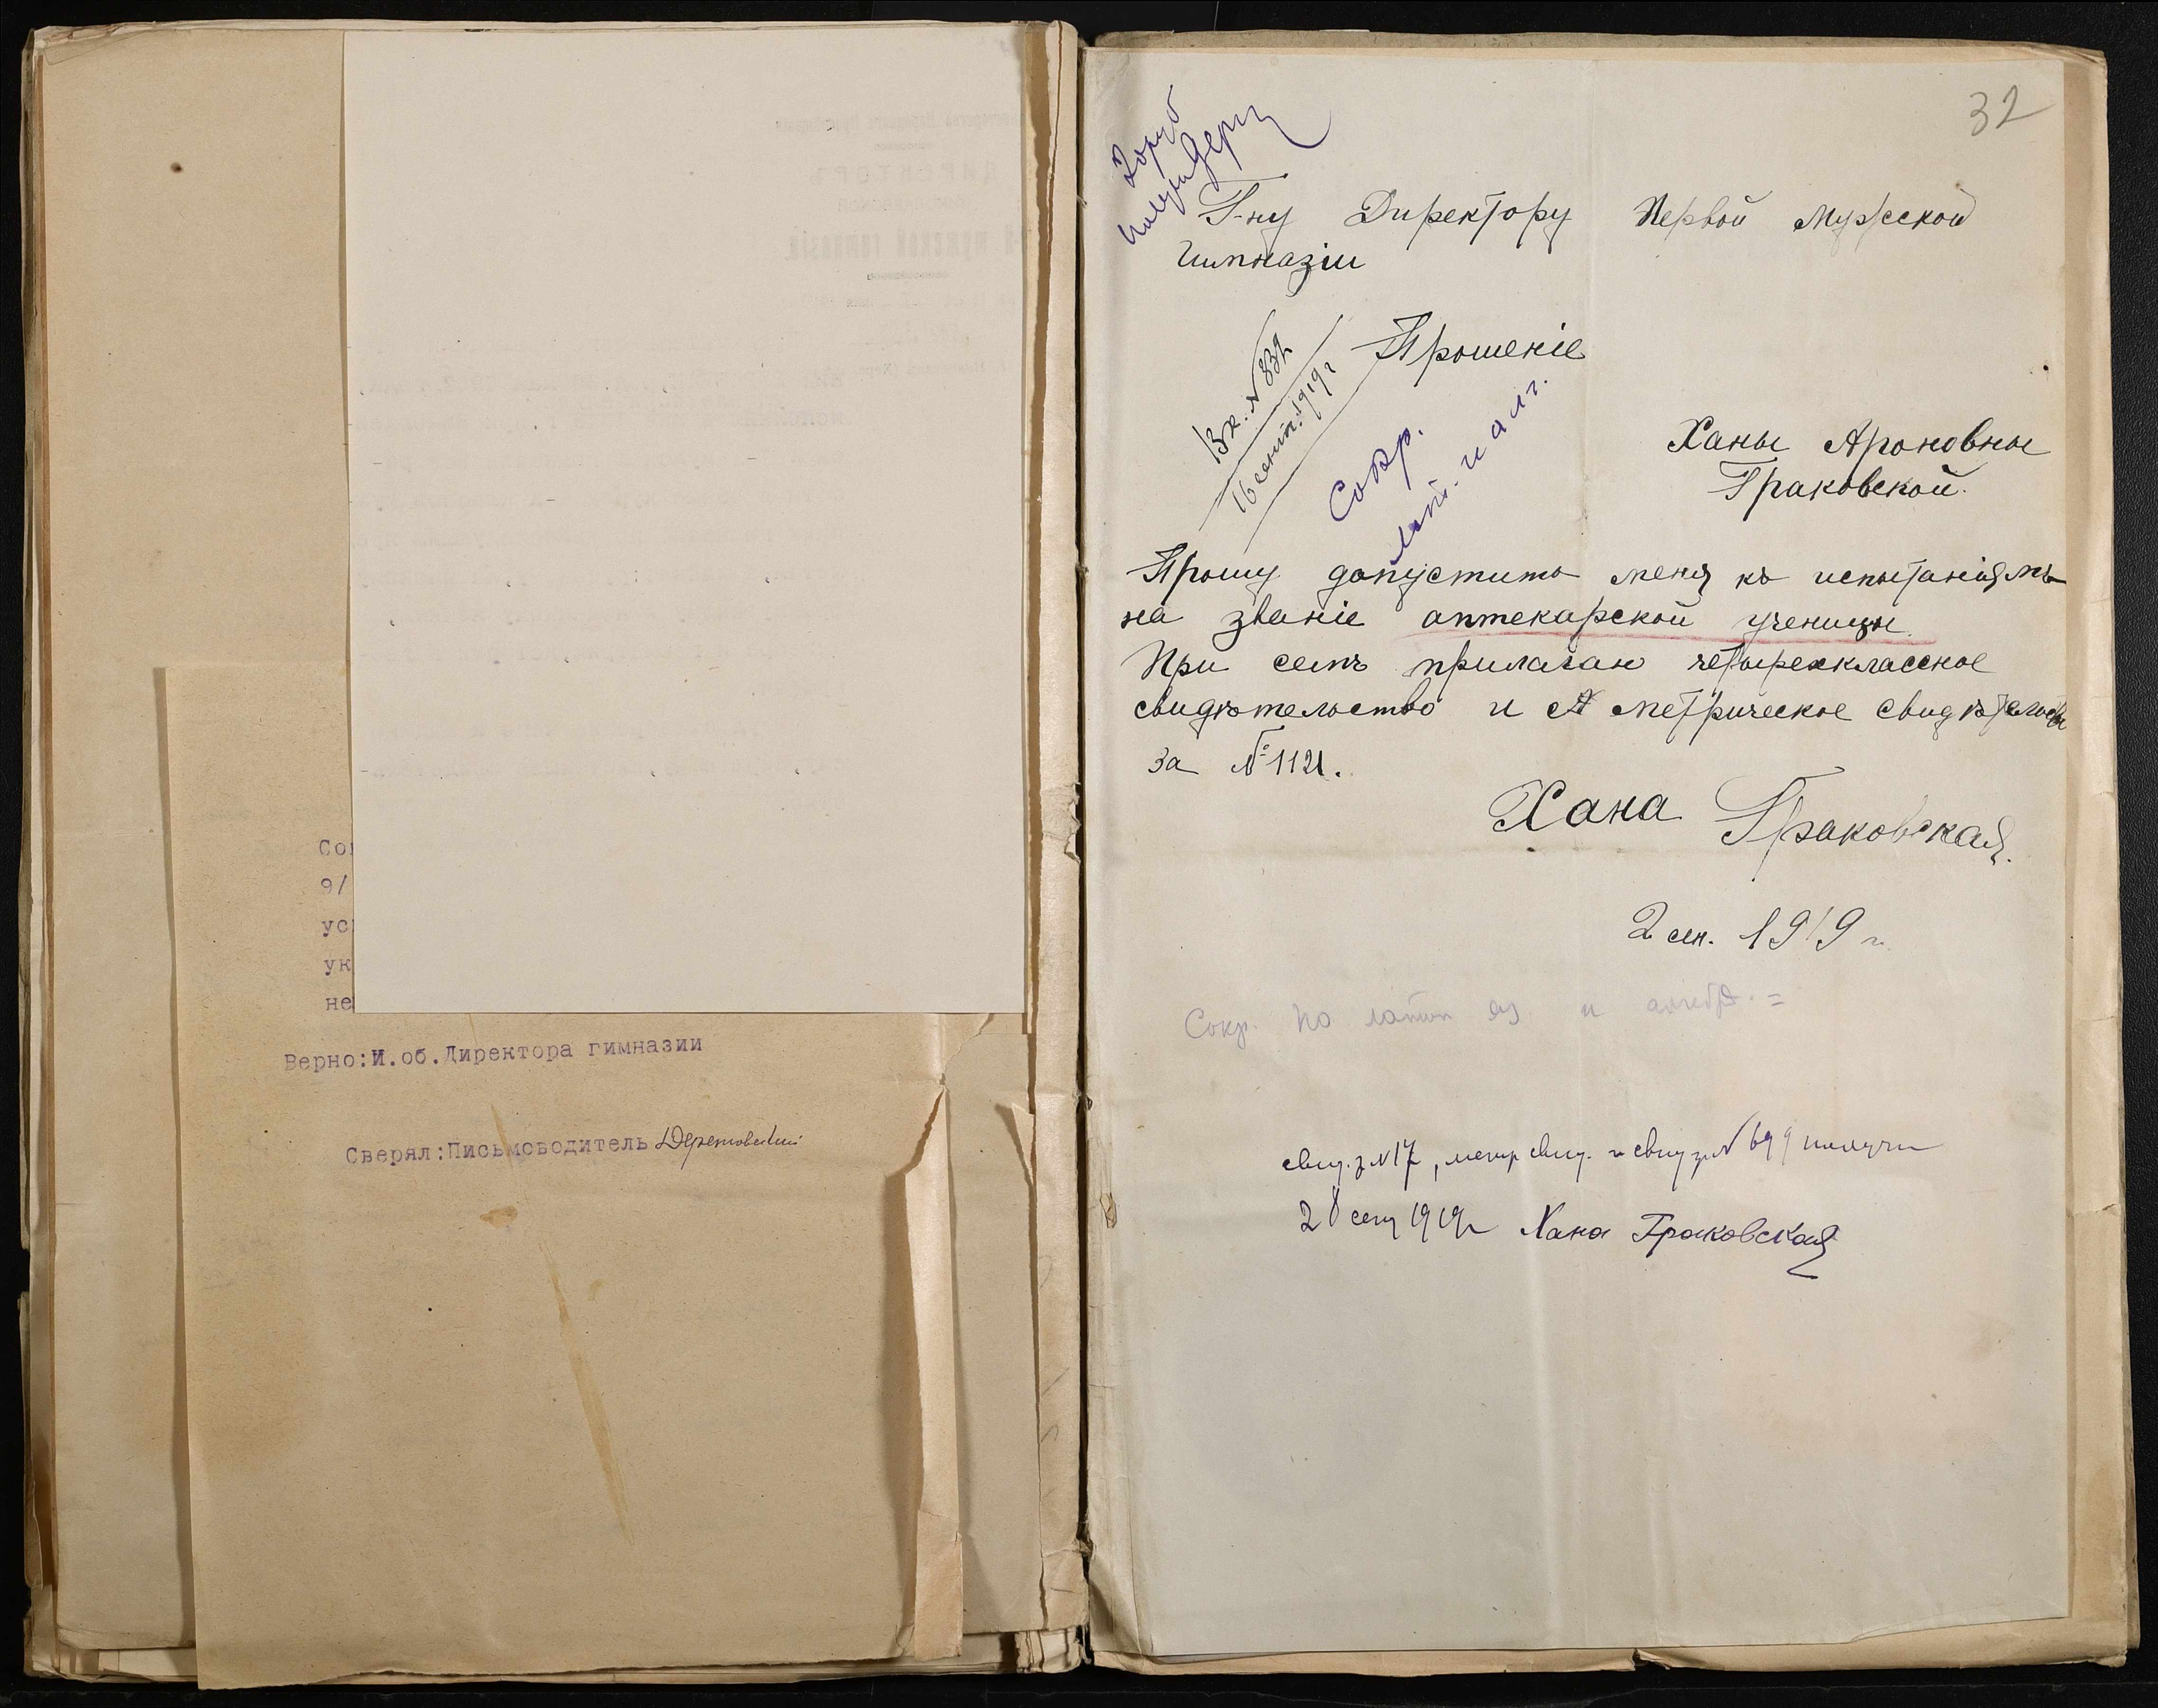 Со
9/
ус
ук
не
Верно:И.об.Директора гимназии
Сверял:Письмоводитель
32
Г-ну Директору Первой Мужской
Гимназіи
Вх. № 832
16 сент. 1919 г
Прошеніе
Сокр.
лат. и алг.
Ханы Ароновны
Граковской.
Прошу допустить меня къ испытаніямъ
на званіе аптекарской ученицы.
При семъ прилагаю четырехклассное
свидѣтельство и метрическое свидѣтельство
за № 1121.
Хана Граковская.
2 сен. 1919 г.
Сокр. по латин яз. и алгебр. =
свид. за № 17, метр свид. и свид за № 699 получи
28 сент 1919 г Хана Граковская